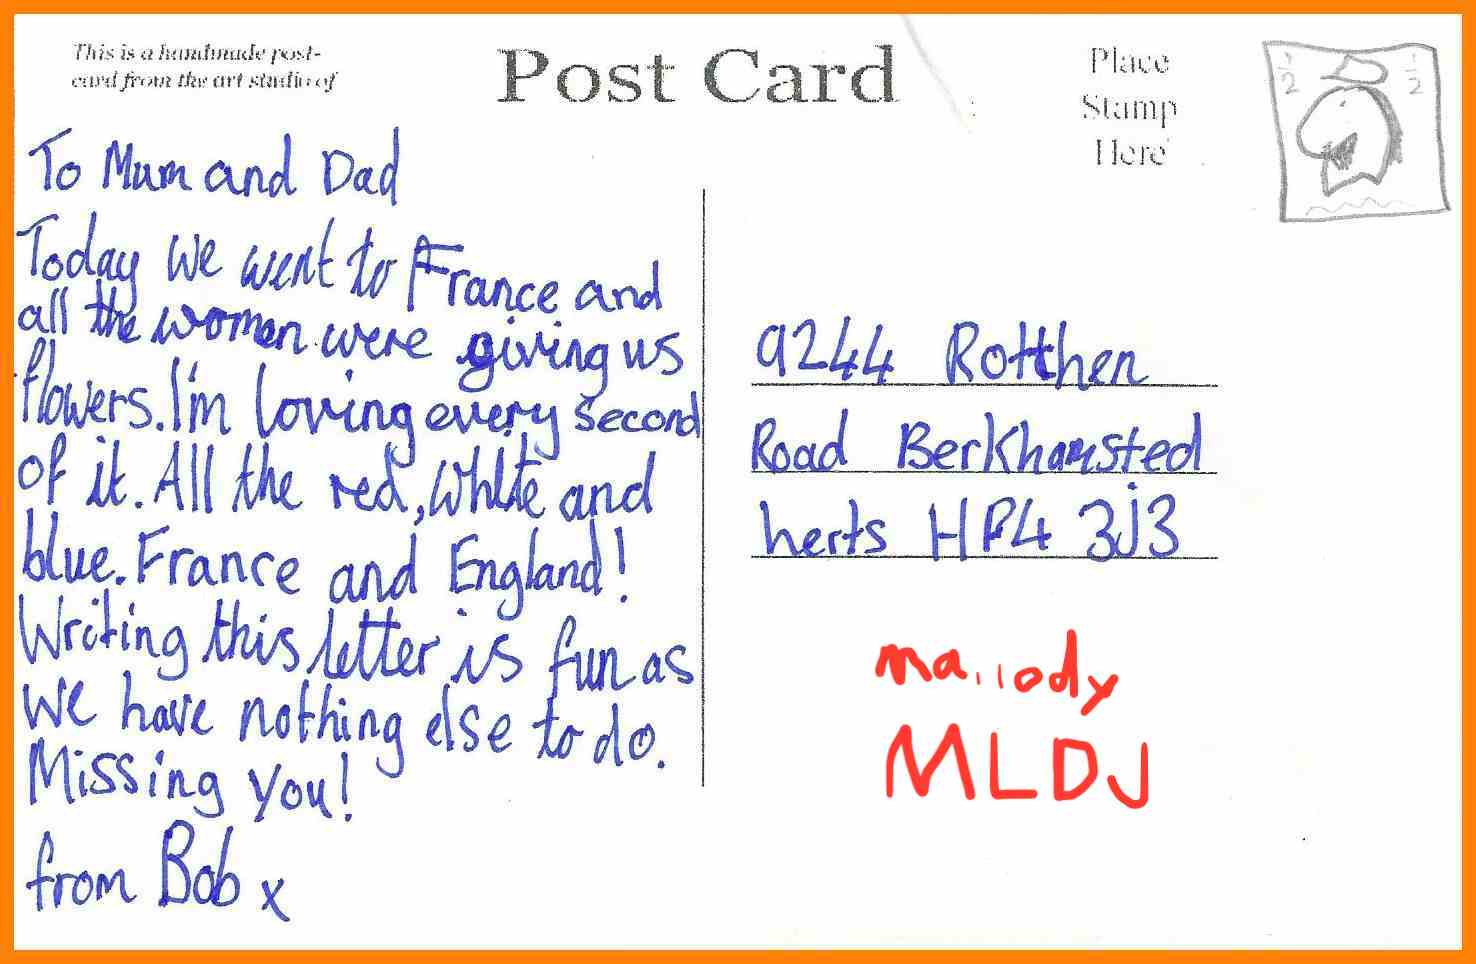 This is a handmade post-
card from the art studio of
Post Card
Place
Stamp
Here
1/2
1/2
To Mum and Dad
Today we went to France and
all the women were giving us
flowers. I'm loving every second
of it. All the red, white and
blue. France and England!
Writing this letter is fun as
we have nothing else to do.
Missing you!
from Bob x
9244 Rotthen
Road Berkhamsted
herts HP4 3J3
MLDJ